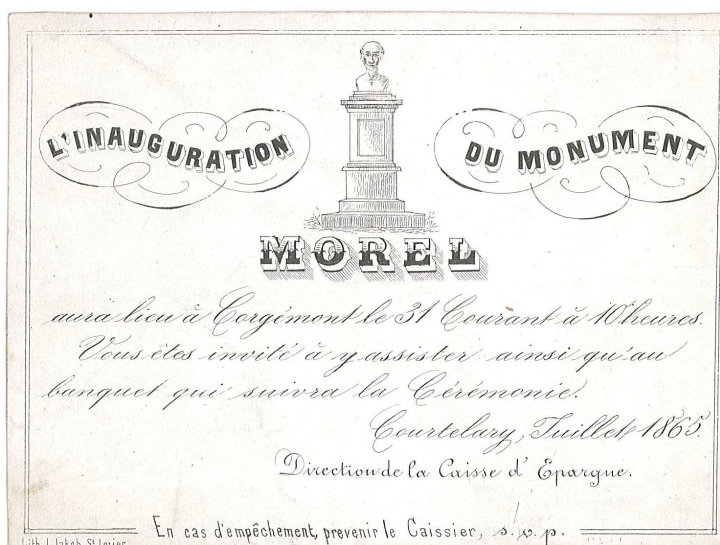 L'INAUGURATION DU MONUMENT
MOREL
aura lieu à Corgémont le 31 Courant à 10 heures.
Vous êtes invité à y assister ainsi qu'au
banquet qui suivra la Cérémonie.
Courtelary, Juillet 1865.
Direction de la Caisse d'Épargne.
En cas d'empêchement, prevenir le Caissier, s. v. p.
Lith. J. Jakob, St Imier